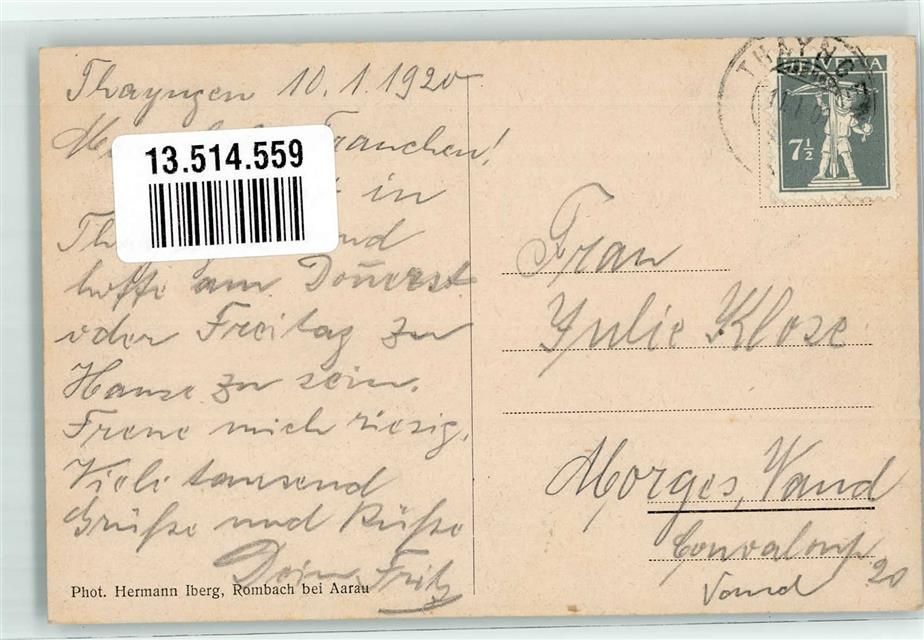 Thayngen 10.1.1920
13.514.559
Frauchen!
in
Th und
hoffe am Don̄erst
oder Freitag zu
Hause zu sein.
Freue mich riesig.
Viele tausend
Grüße und Küße
Dein Fritz
Phot. Hermann Iberg, Rombach bei Aarau
THAYNGEN
HELVETIA
7½
Frau
Julie Klose
Morges, Vaud
Vaud
20